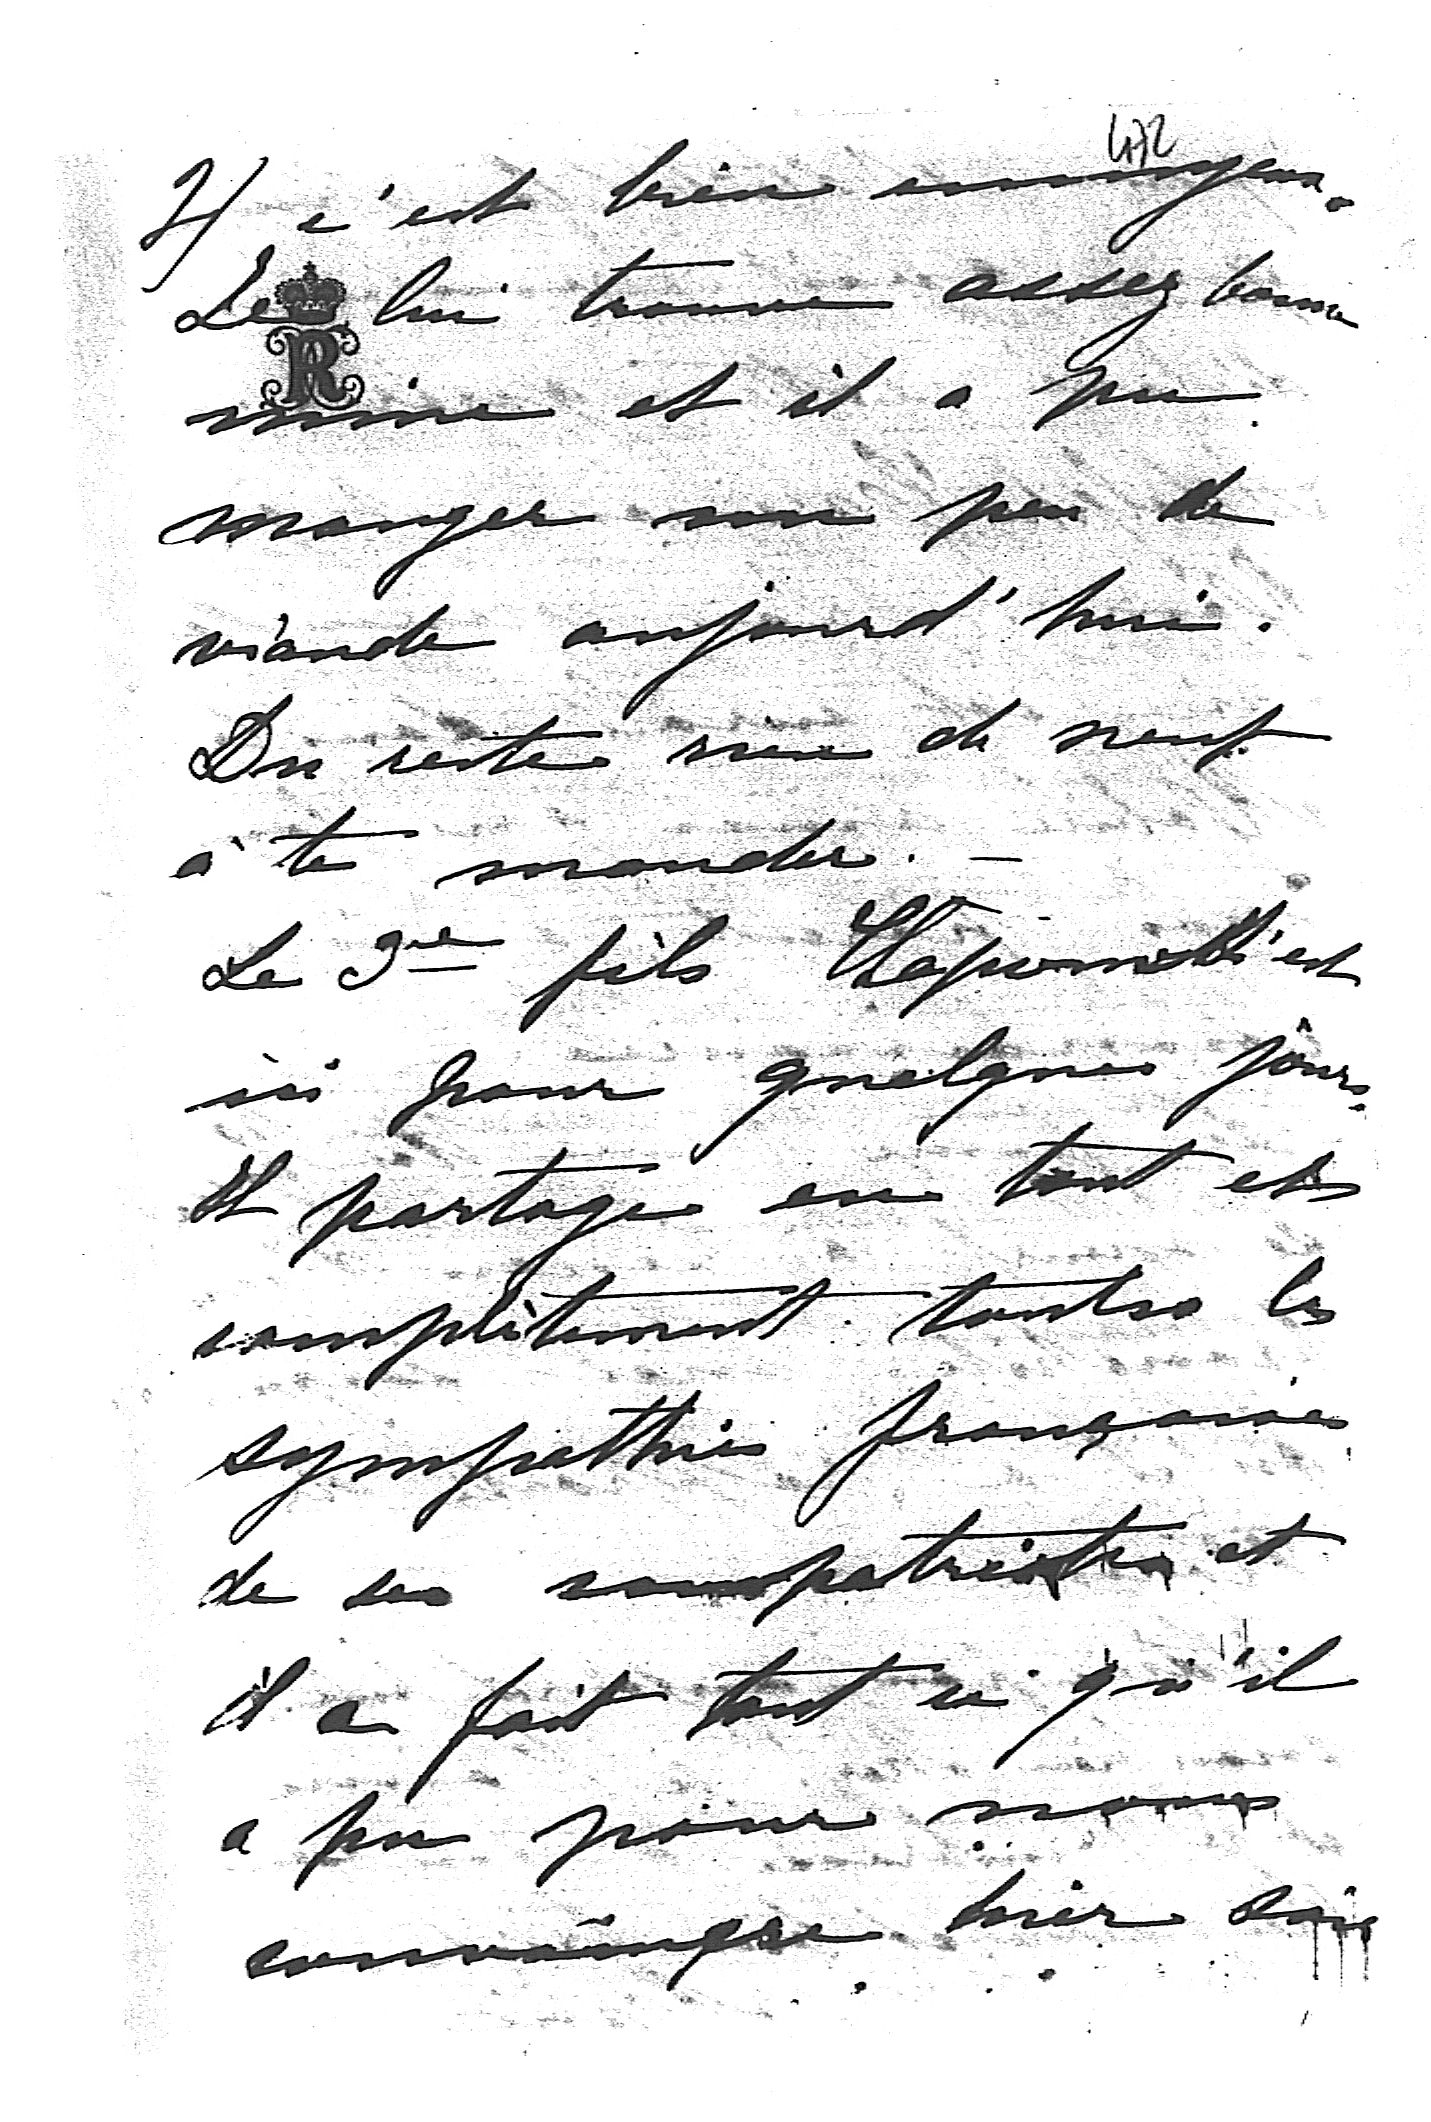 472
2/ c'est bien ennuyeux.
Je lui trouve assez bonne
R
mine et il a pu
manger un peu de
viande aujourd'hui.
Du reste rien de neuf
à te mander. —
Le 3me fils est
ici pour quelques jours.
Il partage en tout et
complètement toutes les
sympathies françaises
de ses compatriotes et
il a fait tout ce qu'il
a pu pour nous
convaincre hier soir